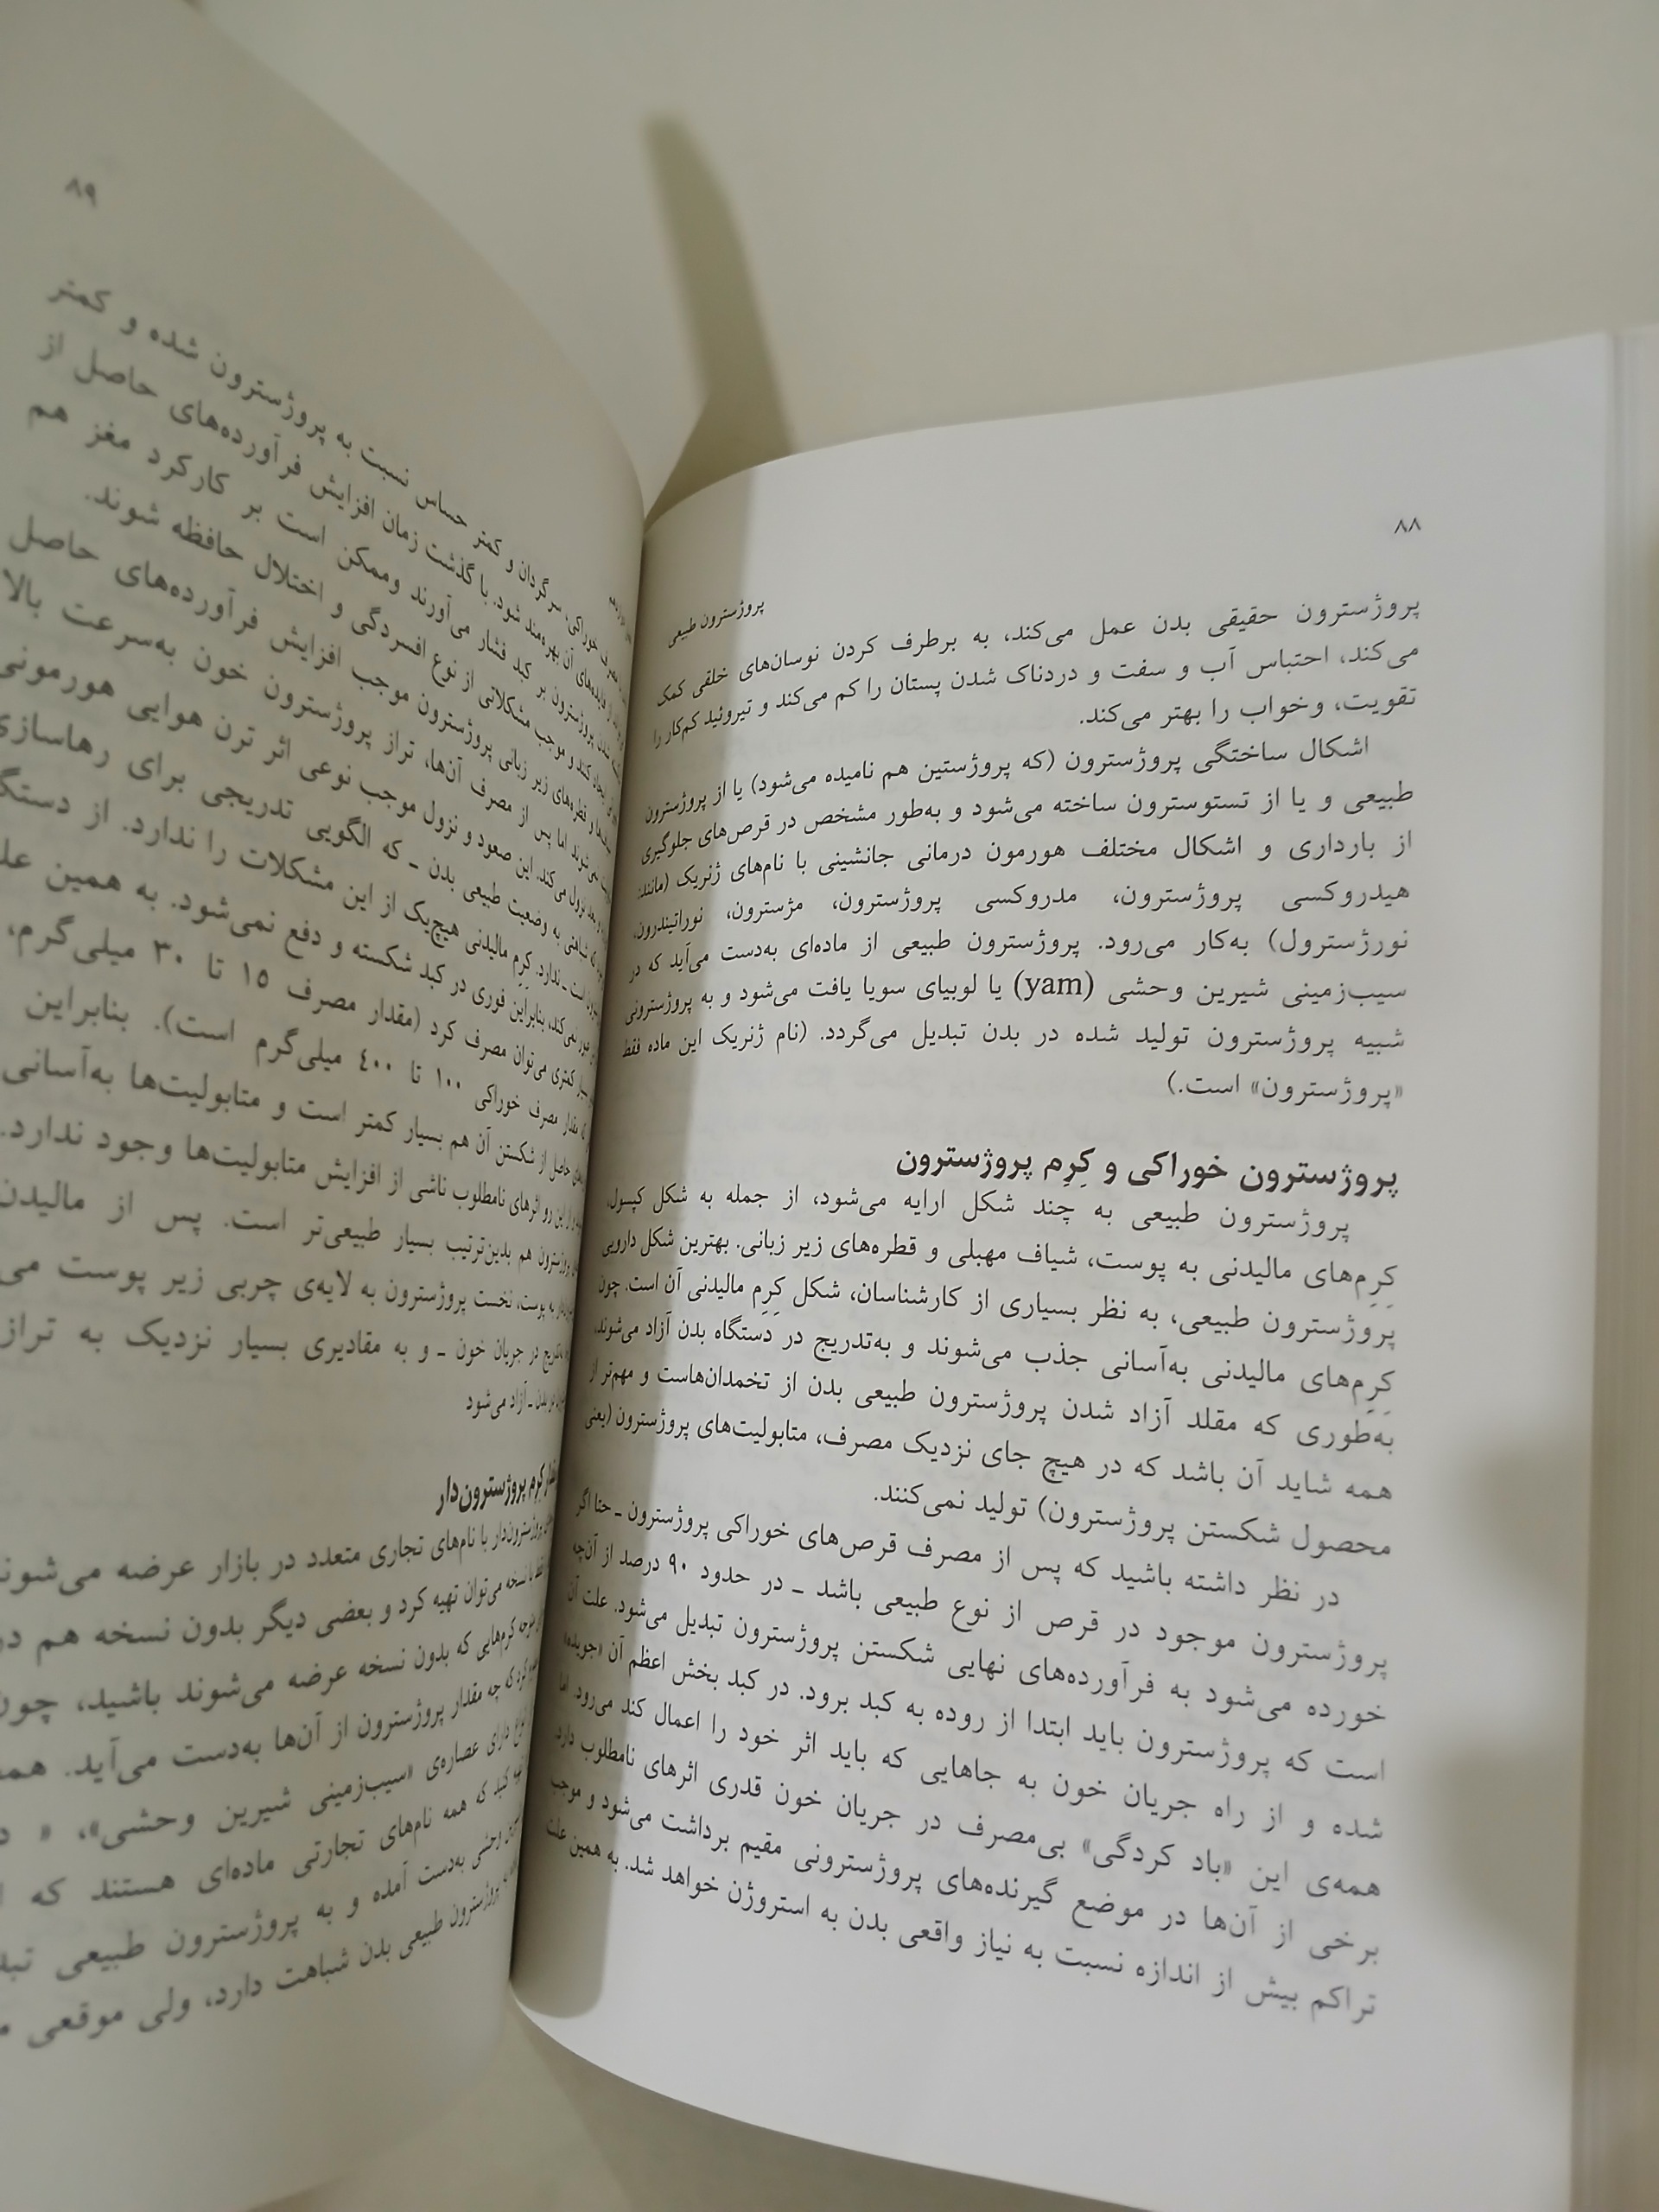 ۸۸
پروژسترون طبیعی
پروژسترون حقیقی بدن عمل می‌کند، به برطرف کردن نوسان‌های خلقی کمک
می‌کند، احتباس آب و سفت و دردناک شدن پستان را کم می‌کند و تیروئید کم‌کار را
تقویت، وخواب را بهتر می‌کند.
اشکال ساختگی پروژسترون (که پروژستین هم نامیده می‌شود) یا از پروژسترون
طبیعی و یا از تستوسترون ساخته می‌شود و به‌طور مشخص در قرص‌های جلوگیری
از بارداری و اشکال مختلف هورمون درمانی جانشینی با نام‌های ژنریک (مانند:
هیدروکسی پروژسترون، مدروکسی پروژسترون، مژسترون، نوراتیندرون،
نورژسترول) به‌کار می‌رود. پروژسترون طبیعی از ماده‌ای به‌دست می‌آید که در
سیب‌زمینی شیرین وحشی (yam) یا لوبیای سویا یافت می‌شود و به پروژسترونی
شبیه پروژسترون تولید شده در بدن تبدیل می‌گردد. (نام ژنریک این ماده فقط
«پروژسترون» است.)
پروژسترون خوراکی و کِرِم پروژسترون
پروژسترون طبیعی به چند شکل ارایه می‌شود، از جمله به شکل کپسول،
کِرِم‌های مالیدنی به پوست، شیاف مهبلی و قطره‌های زیر زبانی. بهترین شکل دارویی
پروژسترون طبیعی، به نظر بسیاری از کارشناسان، شکل کِرِم مالیدنی آن است. چون
کِرِم‌های مالیدنی به‌آسانی جذب می‌شوند و به‌تدریج در دستگاه بدن آزاد می‌شوند،
به‌طوری که مقلد آزاد شدن پروژسترون طبیعی بدن از تخمدان‌هاست و مهم‌تر از
همه شاید آن باشد که در هیچ جای نزدیک مصرف، متابولیت‌های پروژسترون (یعنی
محصول شکستن پروژسترون) تولید نمی‌کنند.
در نظر داشته باشید که پس از مصرف قرص‌های خوراکی پروژسترون ـ حتا اگر
پروژسترون موجود در قرص از نوع طبیعی باشد ـ در حدود ۹۰ درصد از آن‌چه
خورده می‌شود به فرآورده‌های نهایی شکستن پروژسترون تبدیل می‌شود. علت آن
است که پروژسترون باید ابتدا از روده به کبد برود. در کبد بخش اعظم آن «جویده»
شده و از راه جریان خون به جاهایی که باید اثر خود را اعمال کند می‌رود. اما
همه‌ی این «باد کردگی» بی‌مصرف در جریان خون قدری اثرهای نامطلوب دارد
برخی از آن‌ها در موضع گیرنده‌های پروژسترونی مقیم برداشت می‌شود و موجب
تراکم بیش از اندازه نسبت به نیاز واقعی بدن به استروژن خواهد شد. به همین علت
۸۹
خوراکی، سرگردان و کمتر حساس نسبت به پروژسترون شده و کمتر
آن بهره‌مند شود. با گذشت زمان افزایش فرآورده‌های حاصل از
پروژسترون بر کبد فشار می‌آورند وممکن است بر کارکرد مغز هم
کند و موجب مشکلاتی از نوع افسردگی و اختلال حافظه شوند.
قطره‌های زیر زبانی پروژسترون موجب افزایش فرآورده‌های حاصل
نمی‌شوند اما پس از مصرف آن‌ها، تراز پروژسترون خون به‌سرعت بالا
نزول می‌کند. این صعود و نزول موجب نوعی اثر ترن هوایی هورمونی
شباهتی به وضعیت طبیعی بدن ـ که الگویی تدریجی برای رهاسازی
است ـ ندارد. کِرِم مالیدنی هیچ‌یک از این مشکلات را ندارد. از دستگاه
عبور نمی‌کند، بنابراین فوری در کبد شکسته و دفع نمی‌شود. به همین
کمتری می‌توان مصرف کرد (مقدار مصرف ۱۵ تا ۳۰ میلی‌گرم،
مقدار مصرف خوراکی ۱۰۰ تا ۴۰۰ میلی‌گرم است). بنابراین
حاصل از شکستن آن هم بسیار کمتر است و متابولیت‌ها به‌آسانی
از این رو اثرهای نامطلوب ناشی از افزایش متابولیت‌ها وجود ندارد.
پروژسترون هم بدین‌ترتیب بسیار طبیعی‌تر است. پس از مالیدن
به پوست، نخست پروژسترون به لایه‌ی چربی زیر پوست می
در جریان خون ـ و به مقادیری بسیار نزدیک به تراز
بدن ـ آزاد می‌شود
کِرِم پروژسترون‌دار
پروژسترون‌دار با نام‌های تجاری متعدد در بازار عرضه می‌شوند
نسخه می‌توان تهیه کرد و بعضی دیگر بدون نسخه هم در
کرم‌هایی که بدون نسخه عرضه می‌شوند باشید، چون
که چه مقدار پروژسترون از آن‌ها به‌دست می‌آید.
دارای عصاره‌ی «سیب‌زمینی شیرین وحشی»، «
که همه نام‌های تجارتی ماده‌ای هستند که
وحشی به‌دست آمده و به پروژسترون طبیعی
پروژسترون طبیعی بدن شباهت دارد، ولی موقعی